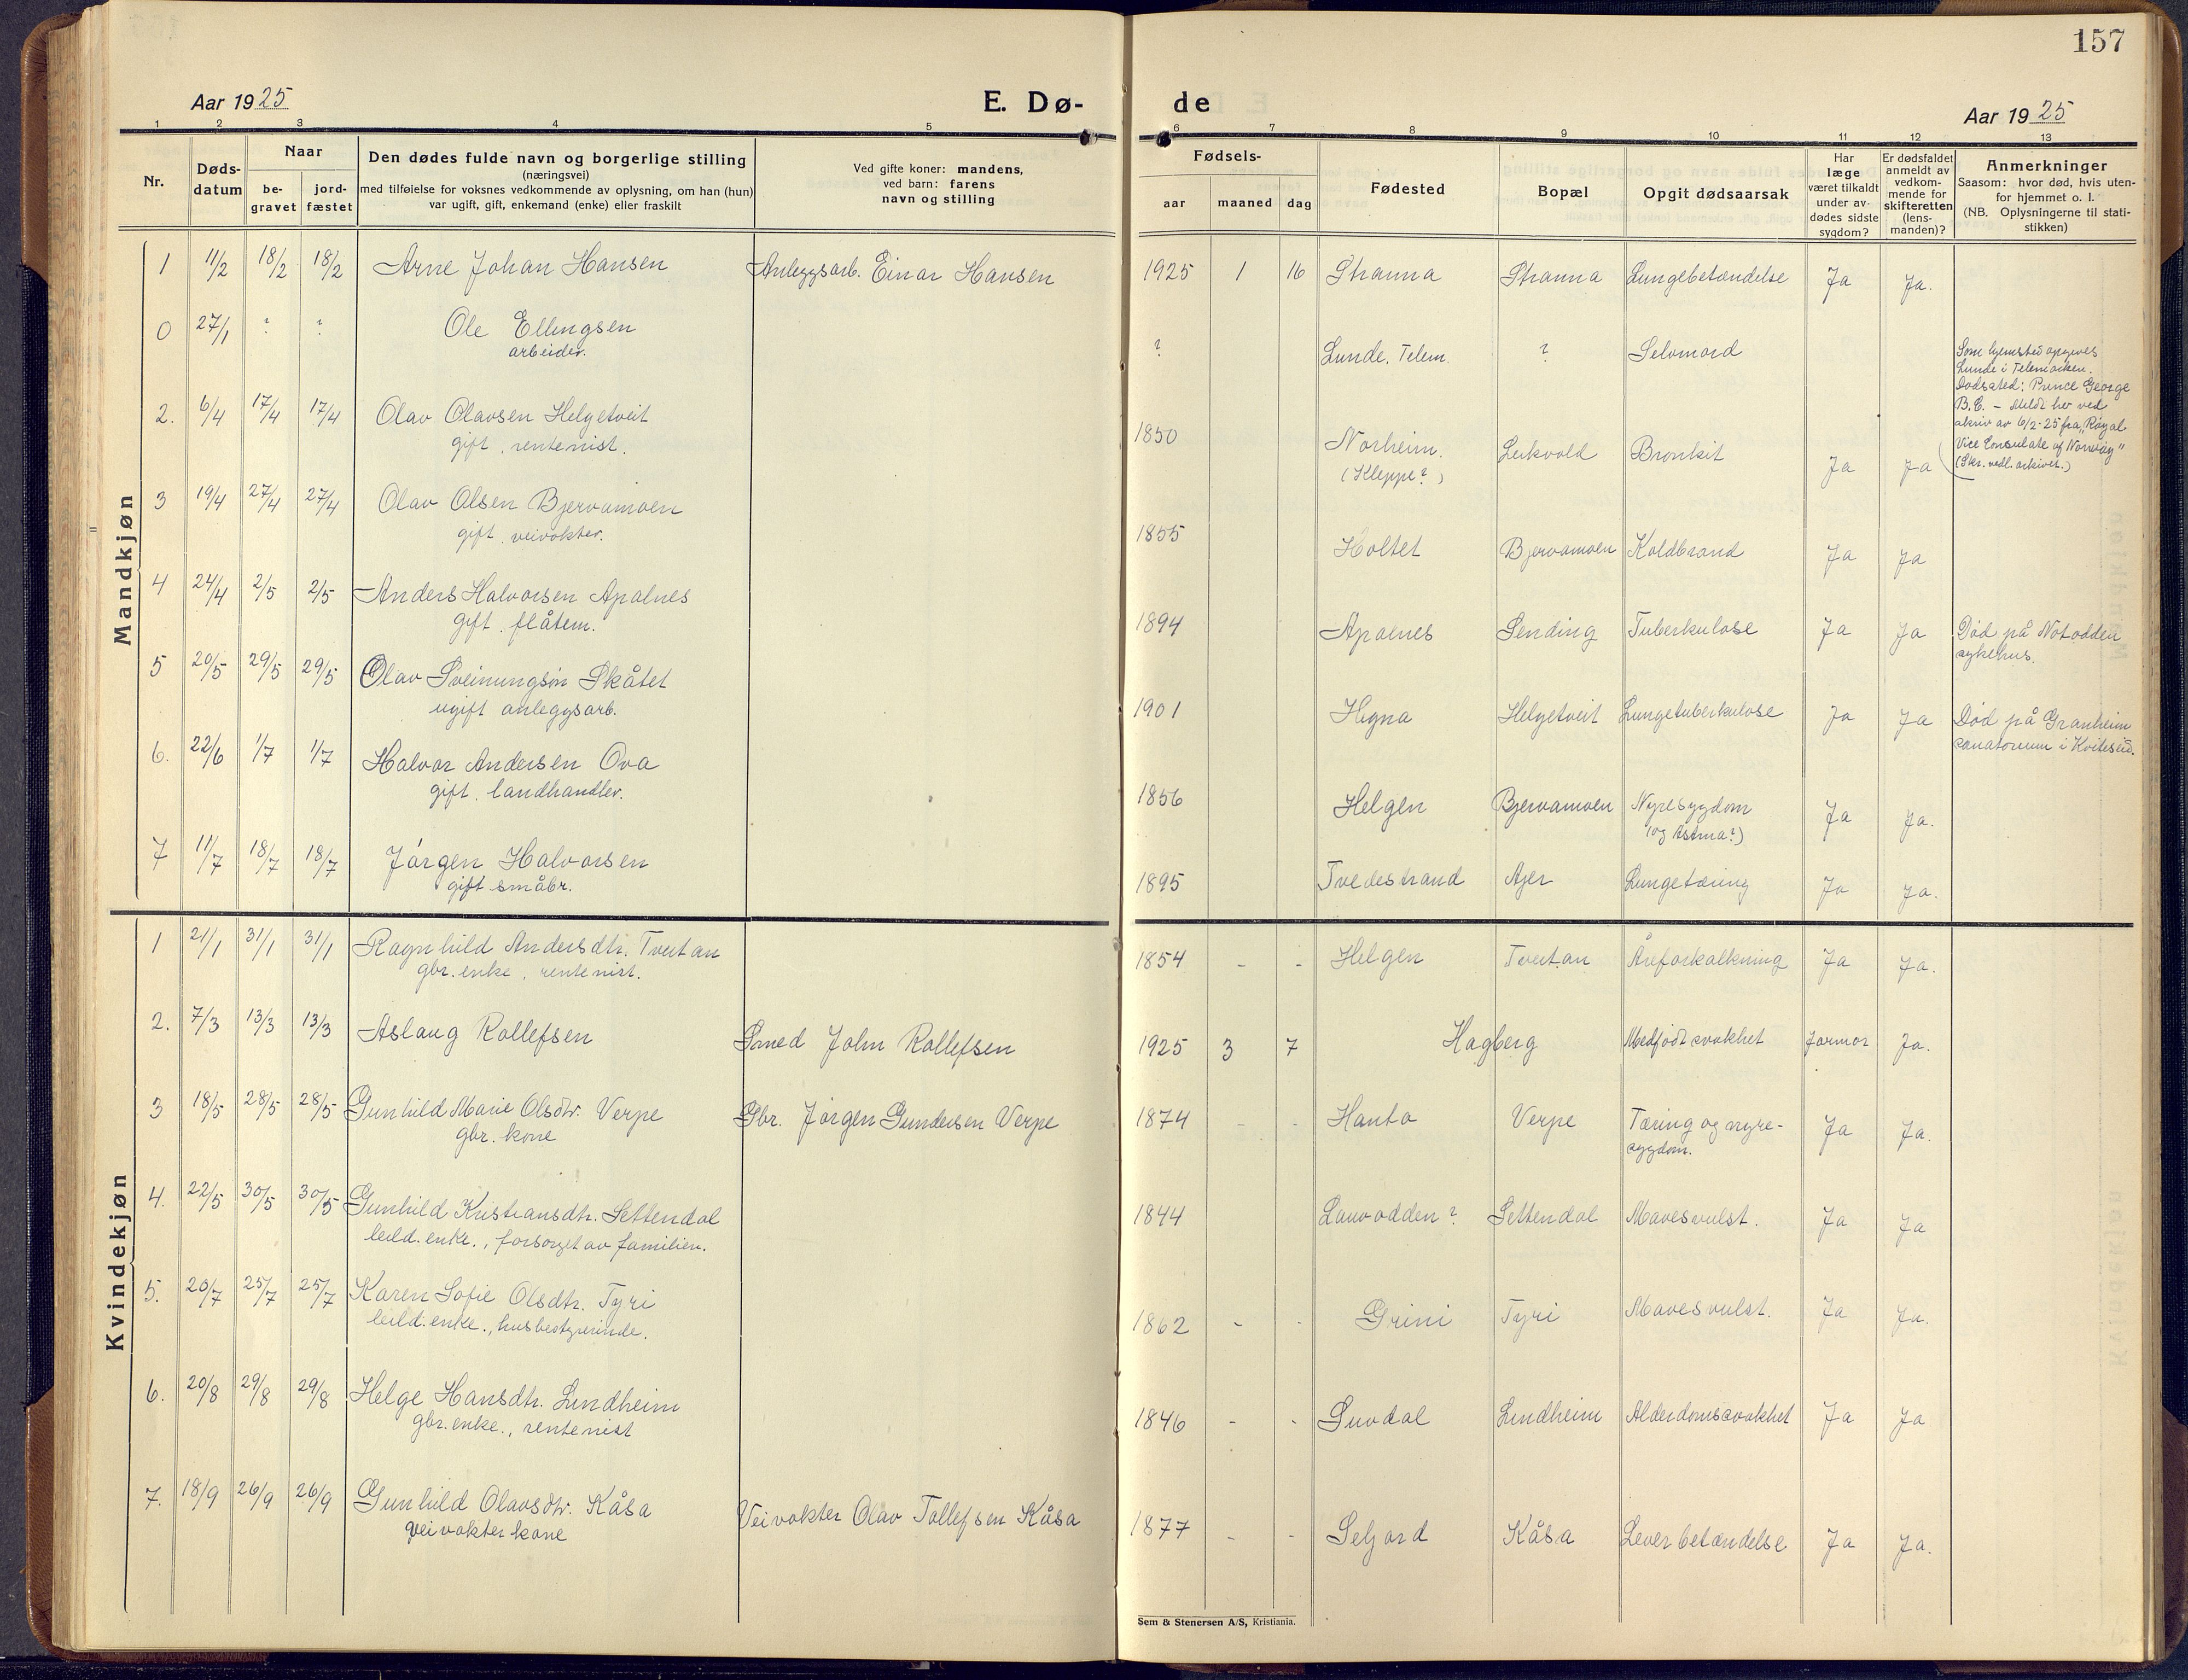 157
Aar 1925
E. Dø-
de
Aar 1925
1 2 3 4 5 6 7 8 9 10 11 12 13
Nr.
Døds-
datum
Naar
be-
gravet
jord-
fæstet
Den dødes fulde navn og borgerlige stilling
(næringsvei)
med tilføielse for voksnes vedkommende av oplysning, om han (hun)
var ugift, gift, enkemand (enke) eller fraskilt
Ved gifte koner: mandens,
ved barn: farens
navn og stilling
Fødsels-
aar maaned dag
Fødested
Bopæl
Opgit dødsaarsak
Har
læge
været tilkaldt
under av-
dødes sidste
sygdom?
Er dødsfaldet
anmeldt av
vedkom-
mende for
skifteretten
(lens-
manden)?
Anmerkninger
Saasom: hvor død, hvis uten-
for hjemmet o. l.
(NB. Oplysningerne til stati-
stikken)
Mandkjøn
1 11/2 18/2 18/2 Arne Johan Hansen Anleggsarb. Einar Hansen 1925 1 16 Stranna Stranna Lungebetændelse Ja Ja.
0 27/1 ? ? Ole Ellingsen ? Lunde, Telem. ? Selvmord
arbeider.
Som hjemsted opgives
Lunde i Telemarken.
Dødssted: Prince George
B.C. – Meldt her ved
skriv av 6/2-25 fra "Royal
Vice Consulate of Norway"
(Skr. vedl. arkivet.)
2. 6/4 17/4 17/4 Olav Olavsen Helgetveit 1850 Norheim. Leikvold Bronkit Ja Ja
gift, rentenist. (Kleppe?)
3 19/4 27/4 27/4 Olav Olsen Bjervamoen 1855 Holtet Bjervamoen Koldbrand Ja Ja
gift, veivokter.
4 24/4 2/5 2/5 Anders Halvorsen Apalnes 1894 Apalnes Sending Tuberkulose Ja Ja Død på Notodden
gift, flåtem. sykehus.
5 20/5 29/5 29/5 Olav Sveinungsøn Skåtet 1901 Hegna Helgetveit Lungetuberkulose Ja Ja Død på Granheim
ugift anleggsarb. sanatorium i Kviteseid.
6. 22/6 1/7 1/7 Halvor Andersen Ova 1856 Helgen Bjervamoen Nyresygdom Ja Ja.
gift, landhandler. (og Astma?)
7 11/7 18/7 18/7 Jørgen Halvorsen 1895 Tvedestrand Ajer Lungetæring Ja Ja.
gift småbr.
Kvindekjøn
1 21/1 31/1 31/1 Ragnhild Andersdtr. Tveitan 1854 - - Helgen Tveitan Åreforkalkning Ja Ja.
gbr. enke, rentenist.
2. 7/3 13/3 13/3 Aslaug Rollefsen Smed John Rollefsen 1925 3 7 Hagberg Medfødt svakhet Jormor Ja.
3 18/5 28/5 28/5 Gunhild Marie Olsdtr. Verpe Gbr. Jørgen Gundersen Verpe 1874 - - Hanto Verpe Tæring og nyre- Ja Ja.
gbr. kone sygdom.
4. 22/5 30/5 30/5 Gunhild Kristiansdtr. Settendal 1844 Lauvodden? Settendal Mavesvulst. Ja Ja
leild. enke., forsørget av familien.
5. 20/7 25/7 25/7 Karen Sofie Olsdtr. Tyri 1862 - - Grini Tyri Mavesvulst. Ja Ja.
leild. enke., husbestyrerinde.
6. 20/8 29/8 29/8 Helge Hansdtr. Lundheim 1846 - - Luvdal Lundheim Alderdomssvakhet Ja Ja.
gbr. enke., rentenist
7. 18/9 26/9 26/9 Gunhild Olavsdtr. Kåsa Veivokter Olav Tollefsen Kåsa 1877 - - Seljord Kåsa Leverbetændelse Ja Ja.
veivokterkone
Sem & Stenersen A/S, Kristiania.